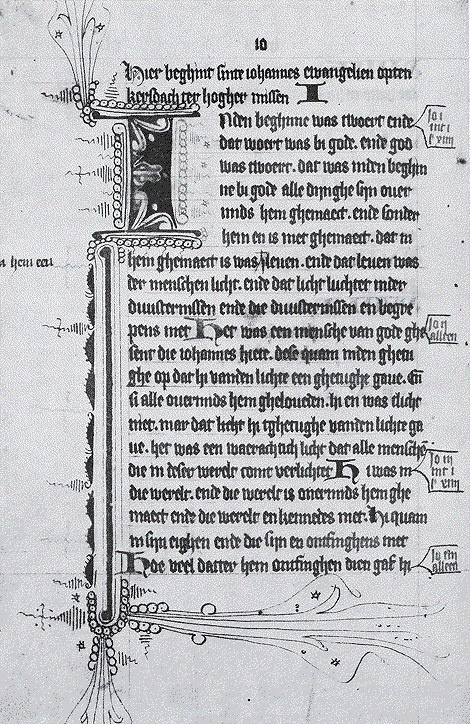 10
Hier beghint sinte iohannes ewangelien opten
kersdach ter hogher missen I
Nden beghinne was twoert ende
dat woert was bi gode. ende god
was twoert. dat was inden beghin
ne bi gode alle dinghe sijn ouer
mids hem ghemaect. ende sonder
hem en is niet ghemaect. dat in
hem ghemaect is was leuen. ende dat leuen was
der menschen licht. ende dat licht luchtet inder
duusternissen ende die duusternissen en begre
pens niet Het was een mensche van gode ghe
sent die iohannes hiete. dese quam inden ghetu
ghe op dat hi vanden lichte een ghetughe gaue. En
si alle ouermids hem gheloueden. hi en was tlicht
niet. mar dat licht hi tghetughe vanden lichte ga
ue. het was een waerachtich licht dat alle mensche
die in deser werelt comt verlichtet Hi was in
die werelt. ende die werelt is ouermids hem ghe
maect ende die werelt en kennedes niet. Hi quam
in sijn eighen ende die sijn en ontfinghens niet
Hoe veel datter hem ontfinghen dien gaf hi